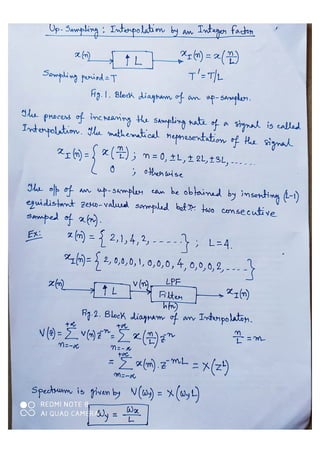 Up-Sampling : Interpolation by an Integer factor
x(n) → ↑ L → x_I(n) = x(n/L)
Sampling period = T    T' = T/L
Fig. 1. Block diagram of an up-sampler.
The process of increasing the sampling rate of a signal is called
Interpolation. The mathematical representation of the signal
x_I(n) = { x(n/L) ; n = 0, ±L, ±2L, ±3L, ......
0 ; otherwise
The o/p of an up-sampler can be obtained by inserting (L-1)
equidistant zero-valued sampled betⁿ two consecutive
samped of x(n).
Ex: x(n) = { 2, 1, 4, 2, ------ } ; L = 4.
x_I(n) = { 2, 0, 0, 0, 1, 0, 0, 0, 4, 0, 0, 0, 2, ----- }
x(n) → ↑ L → V(n) → LPF Filter h(n) → x_I(n)
Fig. 2. Block diagram of an Interpolator.
V(z) = Σ_{n=-∞}^{+∞} V(n) z^{-n} = Σ_{n=-∞}^{+∞} x(n/L) z^{-n}    n/L = m
= Σ_{m=-∞}^{+∞} x(m) . z^{-mL} = X(z^L)
Spectrum is given by V(ωy) = X(ωy L)
ωy = ωx/L
REDMI NOTE 8
AI QUAD CAMERA